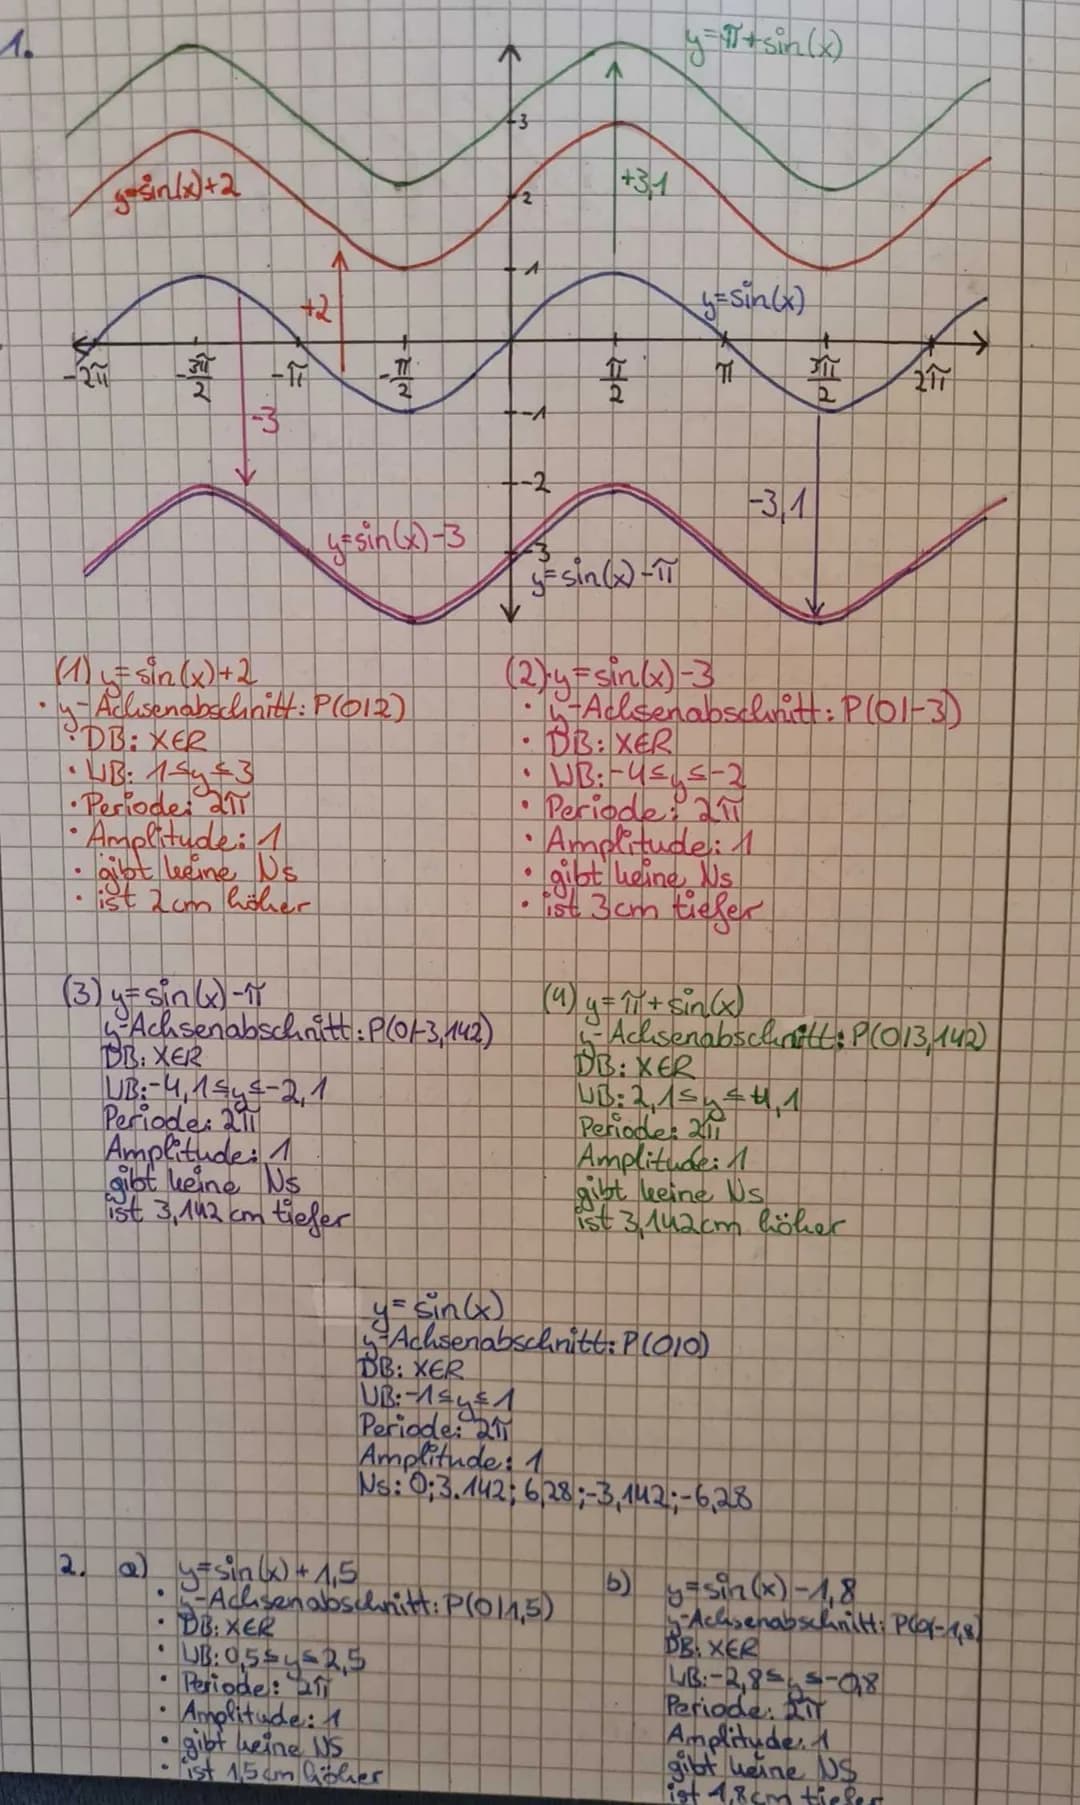 1.
y=π+sin(x)
3
y=sin(x)+2
+3,1
2
1
+2
y=sin(x)
-2π
-3π/2
-π
-π/2
π/2
π
3π/2
2π
-1
-3
-2
-3,1
y=sin(x)-3
-3
y=sin(x)-π
(1) y=sin(x)+2
· y-Achsenabschnitt: P(0|2)
· DB: XER
· WB: 1≤y≤3
· Periode: 2π
· Amplitude: 1
· gibt keine Ns
· ist 2cm höher
(2) y=sin(x)-3
· y-Achsenabschnitt: P(0|-3)
· DB: XER
· WB: -4≤y≤-2
· Periode: 2π
· Amplitude: 1
· gibt keine Ns
· ist 3cm tiefer
(3) y=sin(x)-π
y-Achsenabschnitt: P(0|-3,142)
DB: XER
WB: -4,1≤y≤-2,1
Periode: 2π
Amplitude: 1
gibt keine Ns
ist 3,142 cm tiefer
(4) y=π+sin(x)
y-Achsenabschnitt: P(0|3,142)
DB: XER
WB: 2,1≤y≤4,1
Periode: 2π
Amplitude: 1
gibt keine Ns
ist 3,142cm höher
y=sin(x)
y-Achsenabschnitt: P(0|0)
DB: XER
WB: -1≤y≤1
Periode: 2π
Amplitude: 1
Ns: 0; 3.142; 6,28; -3,142; -6,28
2. a) y=sin(x)+1,5
· y-Achsenabschnitt: P(0|1,5)
· DB: XER
· WB: 0,5≤y≤2,5
· Periode: 2π
· Amplitude: 1
· gibt keine NS
· ist 1,5cm höher
b) y=sin(x)-1,8
y-Achsenabschnitt: P(0|-1,8)
DB: XER
WB: -2,8≤y≤-0,8
Periode: 2π
Amplitude: 1
gibt keine NS
ist 1,8cm tiefer